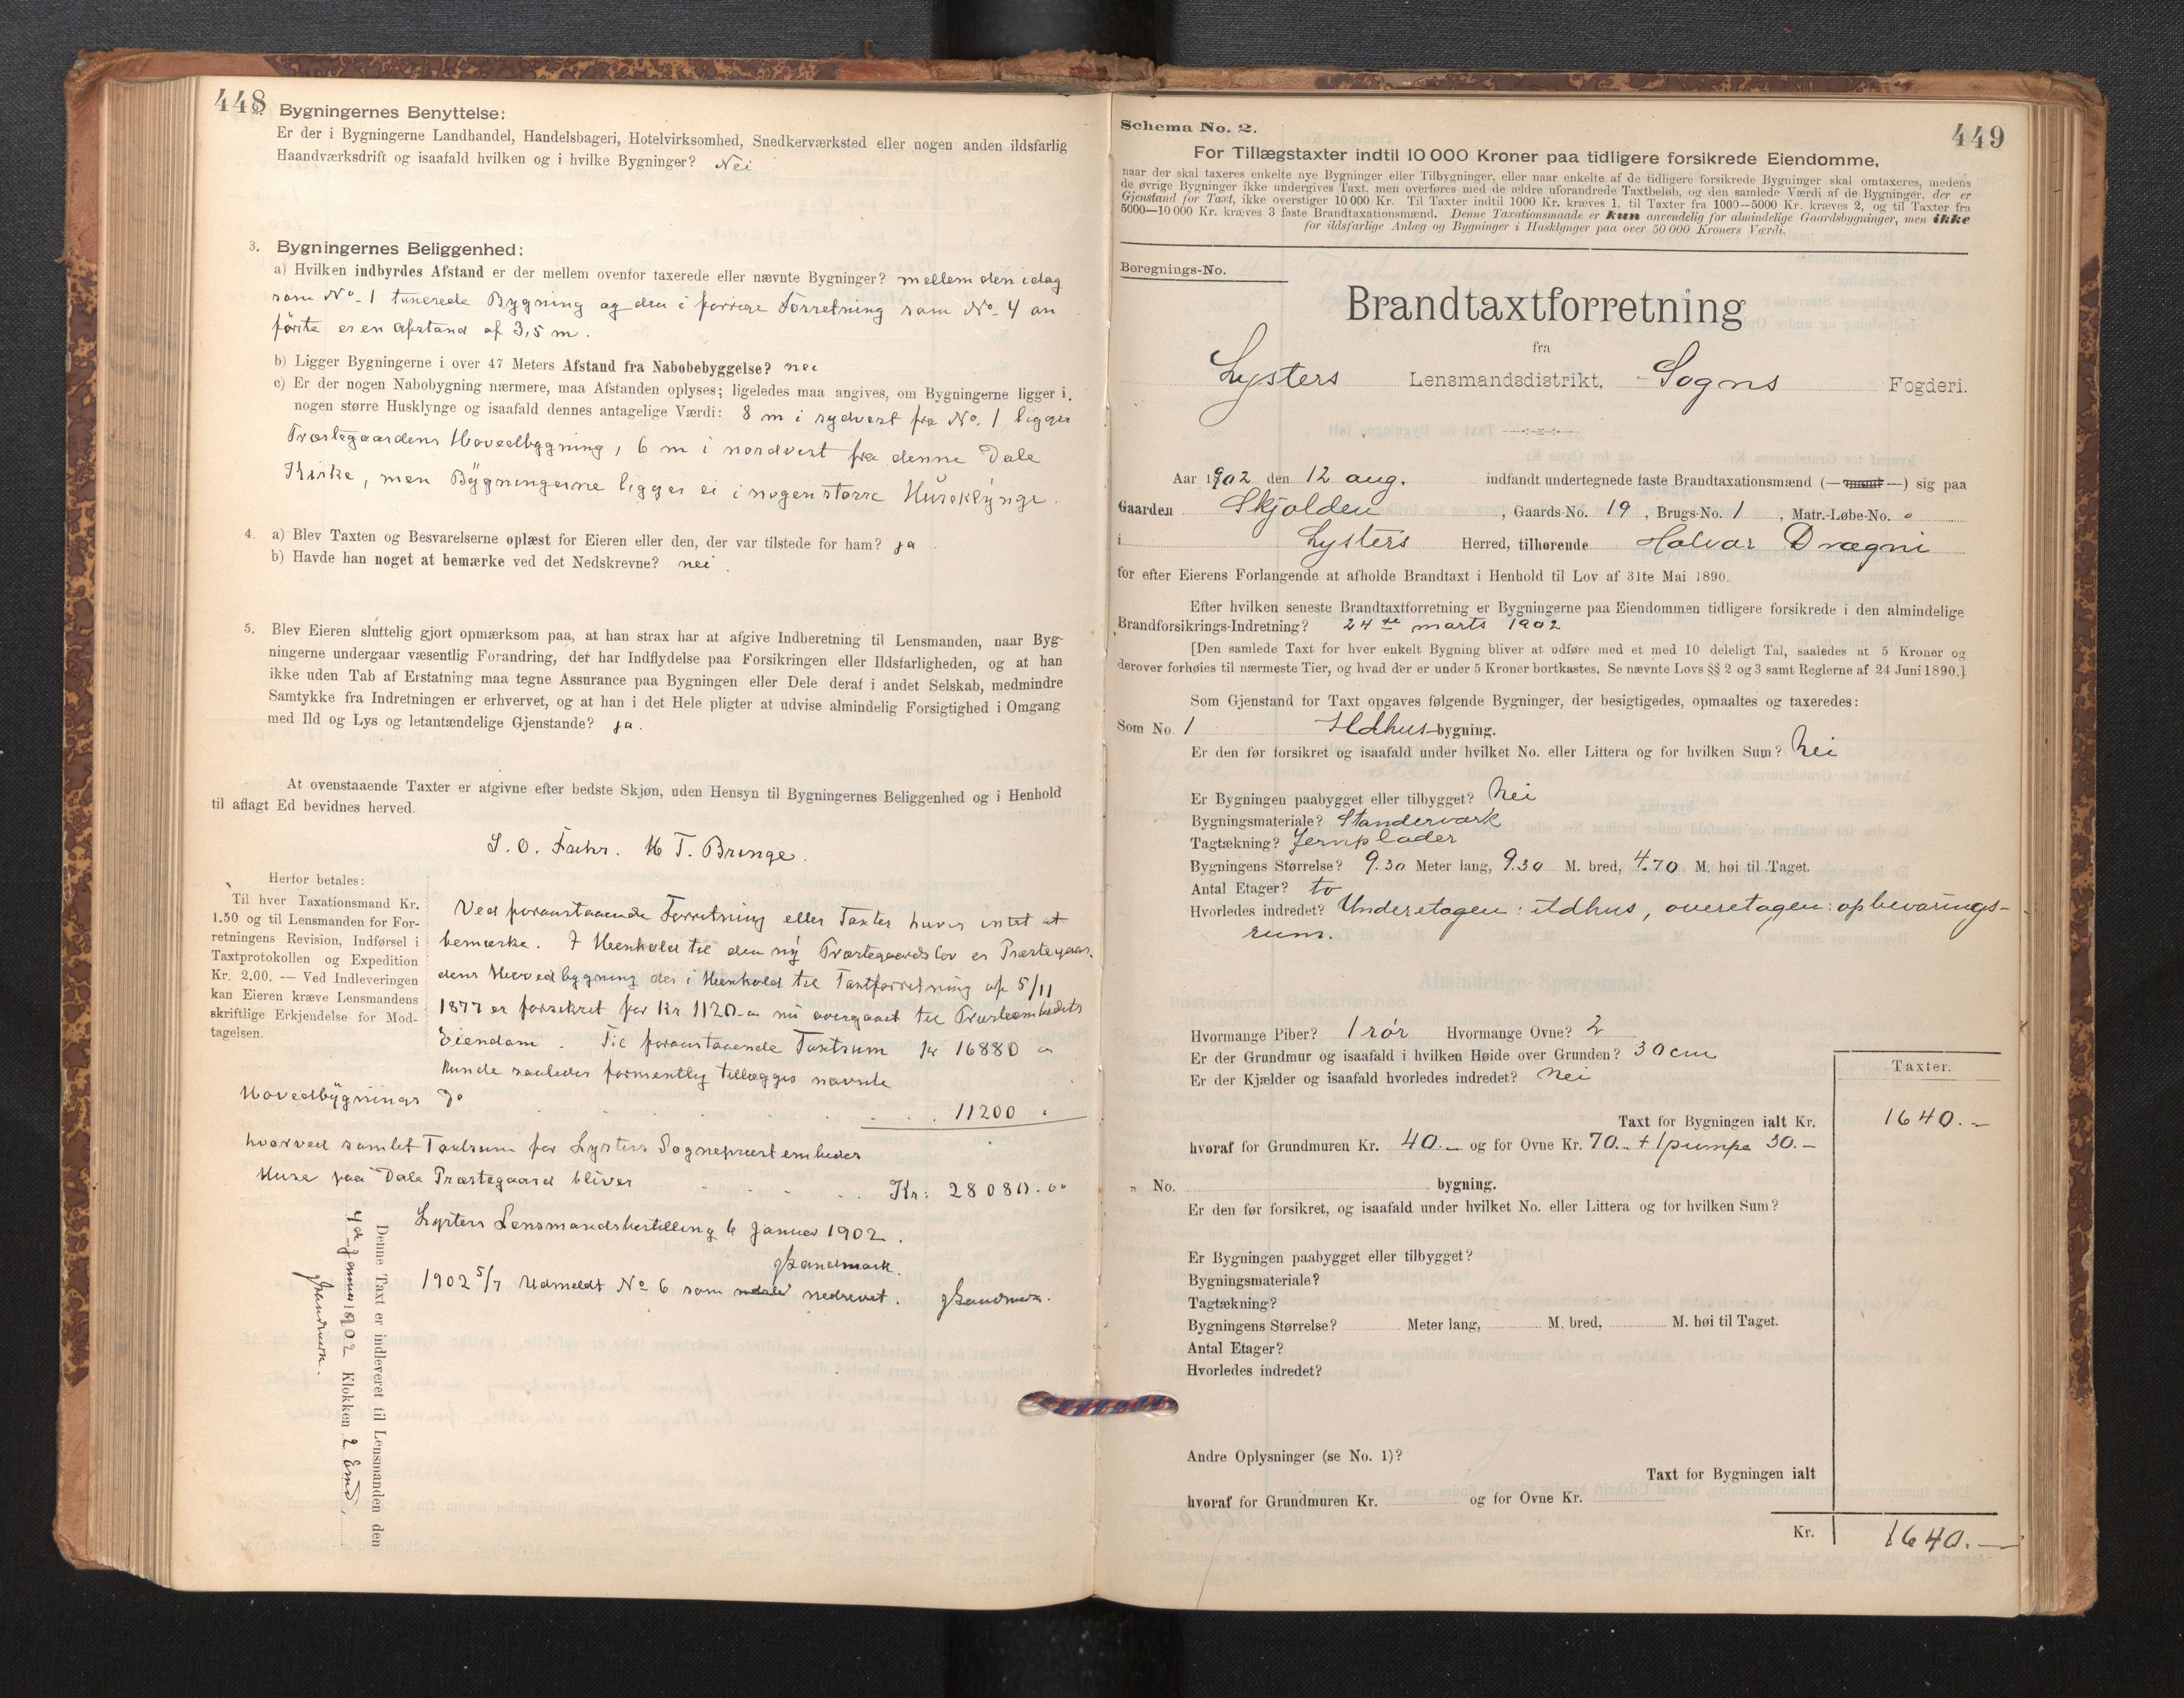 448
2. Bygningernes Benyttelse:
Er der i Bygningerne Landhandel, Handelsbageri, Hotelvirksomhed, Snedkerværksted eller nogen anden ildsfarlig
Haandværksdrift og isaafald hvilken og i hvilke Bygninger? Nei
3. Bygningernes Beliggenhed:
a) Hvilken indbyrdes Afstand er der mellem ovenfor taxerede eller nævnte Bygninger? mellem den idag
som No. 1 taxerede Bygning og den i forrige Forretning som No. 4 an
førte er en Afstand af 3,5 m.
b) Ligger Bygningerne i over 47 Meters Afstand fra Nabobebyggelse? nei
c) Er der nogen Nabobygning nærmere, maa Afstanden oplyses; ligeledes maa angives, om Bygningerne ligger i
nogen større Husklynge og isaafald dennes antagelige Værdi: 8 m i sydvest fra No. 1 ligger
Præstegaardens Hovedbygning, 6 m i nordvest fra denne Dale
Kirke, men Bygningerne ligger ei i nogen større Huseklynge.
4. a) Blev Taxten og Besvarelserne oplæst for Eieren eller den, der var tilstede for ham? ja
b) Havde han noget at bemærke ved det Nedskrevne? nei.
5. Blev Eieren sluttelig gjort opmærksom paa, at han strax har at afgive Indberetning til Lensmanden, naar Byg-
ningerne undergaar væsentlig Forandring, det har Indflydelse paa Forsikringen eller Ildsfarligheden, og at han
ikke uden Tab af Erstatning maa tegne Assurance paa Bygningen eller Dele deraf i andet Selskab, medmindre
Samtykke fra Indretningen er erhvervet, og at han i det Hele pligter at udvise almindelig Forsigtighed i Omgang
med Ild og Lys og letantændelige Gjenstande? ja.
At ovenstaaende Taxter er afgivne efter bedste Skjøn, uden Hensyn til Bygningernes Beliggenhed og i Henhold
til aflagt Ed bevidnes herved.
S. O. Fuhr. M T. Bringe.
Herfor betales:
Til hver Taxationsmand Kr.
1.50 og til Lensmanden for For-
retningens Revision, Indførsel i
Taxtprotokollen og Expedition
Kr. 2.00. — Ved Indleveringen
kan Eieren kræve Lensmandens
skriftlige Erkjendelse for Mod-
tagelsen.
Ved foranstaaende Forretning eller Taxter haves intet at
bemærke. I Henhold til den ny Præstegaardslov er Præstegaar-
dens Hovedbygning der i Henhold til Taxtforretning af 5/11
1877 er forsikret for Kr. 1120 nu overgaaet til Præsteembedets
Eiendom. Til foranstaaende Taxtsum Kr 16880
kunde saaledes formentlig tillægges nævnte
Hovedbygnings Do . . . . . 11200
hvorved samlet Taxtsum for Lysters Sognepræstembedes
Huse paa Dale Præstegaard bliver . . . Kr: 28080.00
Lysters Lensmandsbestilling 6 Januar 1902.
JSandmark.
1902 5/7 Udmeldt No 6 som nedrevet. JSandmark.
Denne Taxt er indleveret til Lensmanden den
4de Januar 1902 Klokken 2 Emd.
JSandmark.
Schema No. 2.
449
For Tillægstaxter indtil 10 000 Kroner paa tidligere forsikrede Eiendomme,
naar der skal taxeres enkelte nye Bygninger eller Tilbygninger, eller naar enkelte af de tidligere forsikrede Bygninger skal omtaxeres, medens
de øvrige Bygninger ikke undergives Taxt, men overføres med de ældre uforandrede Taxtbeløb, og den samlede Værdi af de Bygninger, der er
Gjenstand for Taxt, ikke overstiger 10 000 Kr. Til Taxter indtil 1000 Kr. kræves 1, til Taxter fra 1000—5000 Kr. kræves 2, og til Taxter fra
5000—10 000 Kr. kræves 3 faste Brandtaxationsmænd. Denne Taxationsmaade er kun anvendelig for almindelige Gaardsbygninger, men ikke
for ildsfarlige Anlæg og Bygninger i Husklynger paa over 50 000 Kroners Værdi.
Beregnings-No.
Brandtaxtforretning
fra
Lysters Lensmandsdistrikt, Sogns Fogderi.
Aar 1902 den 12 aug. indfandt undertegnede faste Brandtaxationsmænd (—mand—) sig paa
Gaarden Skjolden, Gaards-No. 19, Brugs-No. 1, Matr.-Løbe-No.
i Lysters Herred, tilhørende Halvar Drægni
for efter Eierens Forlangende at afholde Brandtaxt i Henhold til Lov af 31te Mai 1890.
Efter hvilken seneste Brandtaxtforretning er Bygningerne paa Eiendommen tidligere forsikrede i den almindelige
Brandforsikrings-Indretning? 24de marts 1902
[Den samlede Taxt for hver enkelt Bygning bliver at udføre med et med 10 deleligt Tal, saaledes at 5 Kroner og
derover forhøies til nærmeste Tier, og hvad der er under 5 Kroner bortkastes. Se nævnte Lovs §§ 2 og 3 samt Reglerne af 24 Juni 1890.]
Som Gjenstand for Taxt opgaves følgende Bygninger, der besigtigedes, opmaaltes og taxeredes:
Som No 1 Ildhus bygning.
Er den før forsikret og isaafald under hvilket No. eller Littera og for hvilken Sum? Nei
Er Bygningen paabygget eller tilbygget? Nei
Bygningsmateriale? Standerværk
Tagtækning? Jernplader
Bygningens Størrelse? 9.30 Meter lang, 9.30 M. bred, 4.70 M. høi til Taget.
Antal Etager? to
Hvorledes indredet? Underetagen: ildhus, overetagen: opbevarings-
rum.
Hvormange Piber? 1 rör Hvormange Ovne? 2
Er der Grundmur og isaafald i hvilken Høide over Grunden? 30 cm
Er der Kjælder og isaafald hvorledes indredet? Nei
Taxter.
Taxt for Bygningen ialt Kr. 1640.-
hvoraf for Grundmuren Kr. 40.- og for Ovne Kr. 70.- + 1 pumpe 30.-
„ No. bygning.
Er den før forsikret, og isaafald under hvilket No. eller Littera og for hvilken Sum?
Er Bygningen paabygget eller tilbygget?
Bygningsmateriale?
Tagtækning?
Bygningens Størrelse? Meter lang, M. bred, M. høi til Taget.
Antal Etager?
Hvorledes indredet?
Andre Oplysninger (se No. 1)?
Taxt for Bygningen ialt
hvoraf for Grundmuren Kr. og for Ovne Kr.
Kr. 1640.-